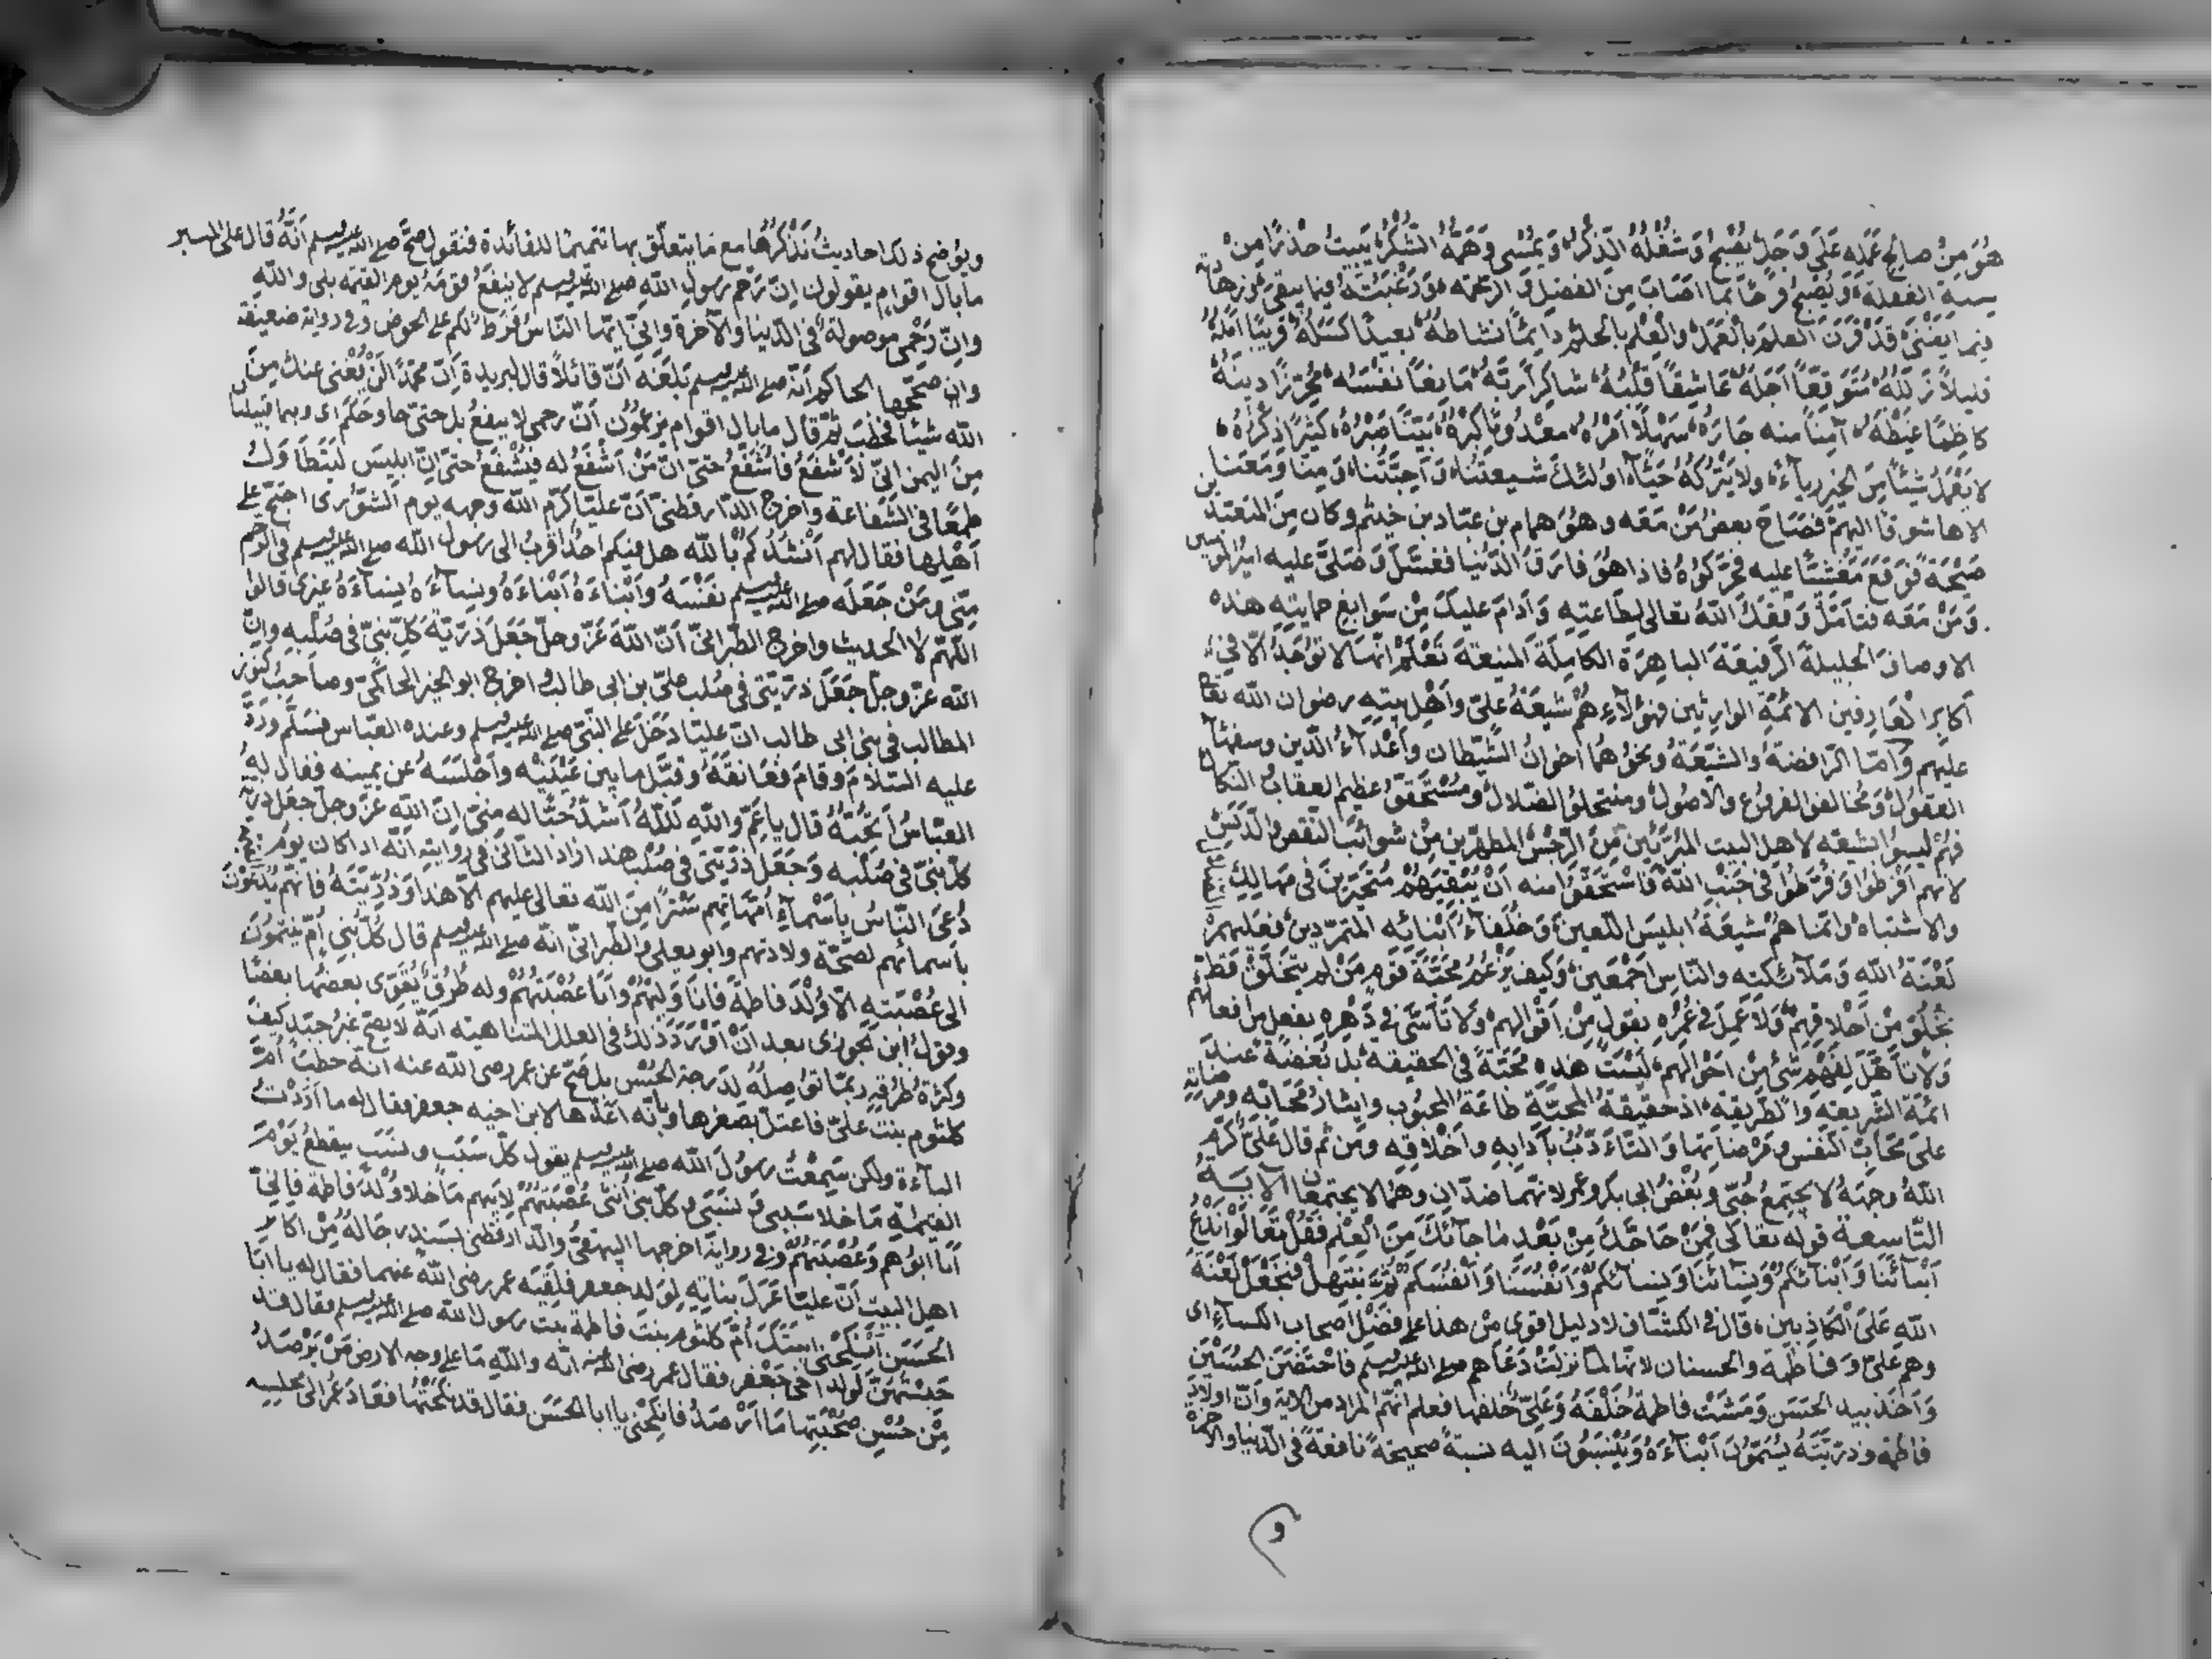 هُوَ مِنْ صالح عَمَلِه عَلَى وَجَلٍ يُصْبِحُ وَشُغْلُهُ الذِّكْرُ وَيُمْسِى وَهَمُّهُ الشُّكْرُ يَبِيتُ حَذَرًا مِنْ
سِنَةِ الغفلةِ وَيُصْبِحُ فَرِحًا بما اَصَابَ مِنَ الفضلِ وَالرَّحْمَةِ وَرَغْبَتُهُ فيما يبقى وزهادته
فيما يَفْنَى قَدْ قَرَنَ العلمَ بِالْعَمَلِ والْعِلْمَ بالحلمِ دائِمًا نشاطُهُ بعيدًا كَسَلُهُ قَرِيبًا اَمَلُهُ
قليلاً زَلَلُهُ مُتَوَقِّعًا اَجَلَهُ عَاشِقًا قَلْبُهُ شاكِرًا رَبَّهُ مَانِعًا نَفْسَهُ مُحْرِزًا دِينَهُ
كاظِمًا غَيْظَهُ آمِنًا منه جَارُهُ سَهْلًا اَمْرُهُ معدُومًا كِبْرُهُ بَيِّنًا صَبْرُهُ كَثِيرًا ذِكْرُهُ
لا يَعْمَلُ شَيْئًا مِنَ الخيرِ رِيآءً ولا يَتْرُكُهُ حَيَآءً اُولٰئِكَ شيعتُنا وَاَحِبَّتُنا وَمِنّا وَمَعَنا
الا ها شوقًا اليهم فصَاحَ بعضُ مَنْ مَعَه وهُوَ همام بن عبّاد بن خيثم وكان مِنَ المتعبّدين
صَيْحَةً فوَقَعَ مَغْشِيًّا عليه فحَرَّكُوهُ فاذا هُوَ فارَقَ الدُّنيا فغسّلَ وَصَلَّى عليه امير المؤمنين
وَمَنْ مَعَه فتأمَّلْ وَفَّقَكَ اللهُ تعالى لِطاعتِهِ وَاَدَامَ عليكَ مِنْ سَوابِغِ حمايتِهِ هذه
الاوصافَ الجليلةَ الرَّفيعَةَ الباهِرَةَ الكامِلَةَ المنيعةَ تَعْلَمْ اَنَّها لا تُوْجَدُ اِلّا فِي
اَكابِرِ الْعَارِفين الائمّةِ الوارِثِين فهٰؤلآءِ هُمْ شيعَةُ عليّ واَهْلِ بيتِهِ رضوان الله تعالى
عليهم وَاَمّا الرّافضةُ والشّيعَةُ ونحوُهما اخوانُ الشّيطان واَعْدآءُ الدّين وسفهآء
العقولِ وَمُخالفو الفروعِ والاصُولِ ومنتحلوُ الضّلالِ ومُسْتحِقّو عظيم العقابِ والنكال
فهُمْ ليسوُا بشيعة لاهل البيت المُبَرَّئِينَ مِنَ الرِّجْسِ المطهّرين مِنْ شوائبِ النّقص والدّنَسِ
لانهم اَفْرَطُوا وَفَرَّطُوا فى جَنْبِ اللهِ فاسْتَحَقُّوا منه اَنْ يُبْقِيَهُمْ مُتحَيِّرينَ فى مهالِكِ الضلال
والاشتباه وانّما هُمْ شيعَةُ ابليسَ اللّعين وَخُلَفآءُ اَبْنائِه المتمرّدِين فَعَليهِمْ
لَعْنَةُ اللهِ وَمَلآئكته والنّاسِ اَجْمَعين وَكيف يَزْعُمُ مَحَبَّةَ قَومٍ مَنْ لم يتخلَّقْ قطّ
بخُلُقٍ مِنْ اَخْلاقِهِمْ وَلا عَمِلَ فى عُمُرِهِ بقولٍ مِنْ اَقْوالِهم وَلا تَاَسَّى فى دَهْرِهِ بفعلٍ من افعالهم
وَلا تَأَهَّلَ لِفَهْمِ شَىْءٍ مِنْ اَحْوالِهِم لَيْسَتْ هذه مَحَبّةً فى الحقيقة بل بُغْضَةً عندَ
ائمّة الشّريعةِ وَالطّريقةِ اذ حقيقةُ المحبّةِ طاعَةُ المحبُوبِ وايثارُ مَحَابِّهِ ومرضاتِه
عَلىَ مَحَابِّ النَّفْسِ ومَرْضاتِها وَالتَّأدُّبُ بآدَابِهِ واَخْلاقِهِ ومَن ثم قال عَلِيٌّ كرّم
اللهُ وجهَهُ لا يجتمِعُ حُبِّى وبُغْضُ ابى بكر وعمر لانّهما ضدّانِ وهُمَا لا يجتمعان الآيَــةُ
التّاسعة قوله تعالى فمَنْ حَاجَّكَ مِنْ بَعْدِ ما جآئَكَ مِنَ الْعِلْمِ فَقُلْ تَعَالَوْا نَدْعُ
اَبْنآئَنَا وَاَبْنآئَكُمْ وَنِسآئَنَا وَنِسآئَكُمْ وَاَنْفُسَنَا وَاَنْفُسَكُمْ ثُمَّ نَبْتَهِلْ فَنَجْعَلْ لَعْنَةَ
اللهِ عَلَى الْكَاذِبِينَ قال فى الكشّاف لا دليل اقوى مِن هذا على فَضْلِ اَصْحابِ الكساءِ اى
وهم علىّ وَفاطمة والحسنان لانّها لمّا نزلَتْ دَعَاهم صلى الله عليه وسلم فاحْتَضَنَ الحُسَيْنَ
وَاَخَذ بيدِ الحَسَنِ وَمَشَتْ فاطمة خَلْفَهُ وَعَلِىٌّ خلفها فعلم انّهم المراد من الاية وَاَنّ اولادَ
فاطمة وذرّيتَهُ يُسَمَّوْنَ اَبْنآءَهُ وَيُنْسَبُوْنَ اليه نسبةً صحيحةً نافعةً فى الدّنيا والاخرة
و
ويوُضح ذلك احاديثُ نَذْكُرُها مع مَا يتعلّق بها تتميمًا للفائدة فنقول صحّ عنه صلى الله عليه وسلم اَنَّهُ قال على المنبر
ما بالُ اقوامٍ يقولون انّ رَحِمَ رسولِ اللهِ صلى الله عليه وسلم لا ينفعُ قومَهُ يوم القيٰمة بلى واللهِ
وانّ رَحِمِى موصولةٌ فى الدّنيا والآخرة وانّى ايّها النّاسُ فَرَطٌ لكم على الحوض وفى رواية ضعيفة
وان صحّحها الحاكم انّه صلى الله عليه وسلم بَلَغَهُ اَنّ قائلاً قال لبريدة اِنّ محمّدًا لَنْ يُغْنِى عنك مِنَ
الله شيئًا فخطبَ ثمّ قال ما بال اقوام يزعمُون اَنّ رحمى لا ينفعُ بل حتّى حا وحكم اى وهما قبيلتان
مِنَ اليمن انّى لَاَشْفَعُ فاُشَفَّعُ حتىّ انّ مَنْ اَشْفَعُ له فيُشَفَّعُ حتىّ اِنّ ابليسَ لَيَتَطَاوَلُ
طمعًا فى الشّفاعة واَخرج الدّارقطنىّ اَنّ عليّا كرّم الله وجهه يوم الشّوُرى احتجّ على
اَهْلِها فقال لهم اَنْشُدُكُمْ بالله هل فيكم احدٌ اقربُ الى رسول الله صلى الله عليه وسلم فى الرّحم
مِنّى ومَنْ جَعَلَه صلى الله عليه وسلم نفْسَهُ وَاَبْناءَهُ اَبْناءَهُ ونِسآءَهُ نِسآءَهُ غيرى قالوا
اللّهمّ لا الحديث واخرج الطّبرانىّ اَنّ اللهَ عَزّ وجلّ جَعَلَ ذرّيّةَ كلّ نبىّ فى صُلْبِهِ وانّ
الله عزّ وجلّ جَعَلَ ذرّيّتى فى صُلب علىّ بن ابى طالب واخرج ابو الخير الحاكمىّ وصاحبُ كنوز
المطالب فى بنى ابى طالب انّ عليّا دَخَلَ على النّبىّ صلى الله عليه وسلم وعنده العبّاس فسَلّم فرَدّ
عليه السّلامَ وقامَ فعَانَقَهُ وقبّل ما بين عَيْنَيْهِ واَجْلَسَهُ عن يمينه فقال له
العبّاسُ اَتحِبُّهُ قال يا عَمِّ واللهِ لَلّٰهُ اَشَدُّ حُبًّا له مِنىّ اِنّ اللهَ عزّ وجلّ جعَل ذرّيّة
كلّ نبىّ فى صُلبه وَجَعَلَ ذرّيّتى فى صُلب هذا زاد الثانى فى روايتِهِ انّه اذا كان يومُ القيٰمة
دُعِىَ النّاسُ باَسْمآءِ اُمّهَاتِهِم سَتْرًا مِنَ الله تعالى عليهم الّا هذا وَذُرّيّتَهُ فانّهم يُدْعَوْنَ
باَسمائِهم لصحّة ولادتهم وابو يعلى والطّبرانىّ انّه صلى الله عليه وسلم قال كُلُّ بَنِى اُمٍّ يَنْتَمُونَ
الى عُصْبَتِهِ الّا وُلْدَ فاطمة فاَنَا وَلِيُّهُمْ واَنَا عُصْبَتُهُمْ وله طُرُقٌ يُقَوّى بعضُها بعضًا
وقولُ ابن الجوزى بعد اَنْ اَوْرَدَ ذلك فى العلل المتناهية انّه لا يصحّ غيرُ جيّد كيف
وكثرةُ طُرُقِهِ ربّما توُصِلُهُ لدَرجة الحُسْنِ بل صَحّ عن عمر رضى الله عنه انّه خطَبَ اُمَّ
كلثوم بنتَ علىّ فاعتلّ بصغرِها وبانّه اعدّها لابن اخيه جعفر فقال له ما اَرَدْتُ
البآءَة ولكن سَمِعْتُ رسوُلَ اللهِ صلى الله عليه وسلم يقول كلّ سَبَبٍ ونسَبٍ ينقطعُ يَوْمَ
القيٰمةِ مَا خلا سَبَبِى وَنَسَبِى وكلّ بَنِى اُنثى عُصْبَتُهُمْ لِاَبيهم مَا خَلا وُلْدَ فاطمة فانّىّ
اَنَا ابوُهم وَعُصْبَتُهُمْ وفى رواية اخرجها البيهقىُّ والدّارقطنى بسندٍ رجَالهُ مِنْ اكابر
اهل البيت انّ عليّا عَزَلَ بناتِهِ لِوُلْدِ جعفر فلَقِيَه عمر رضى الله عنهما فقال له يا ابَا
الحَسَن اَنْكِحْنِى ابنتَكَ اُمّ كلثوم بنتَ فاطمة بنت رسول الله صلى الله عليه وسلم فقال قد
حَبَسْتُهُنَّ لوُلْدِ اخى جَعْفر فقال عمر رضى الله عنه انّه واللهِ مَا على وجه الارض مَنْ يَرْصُدُ
مِنْ حُسْنِ صُحْبَتِها مَا اَرْصُدُ فانكِحْنى يا ابا الحَسَن فقال قد نكحْتُها فعَادَ عُمر الى مجلسه